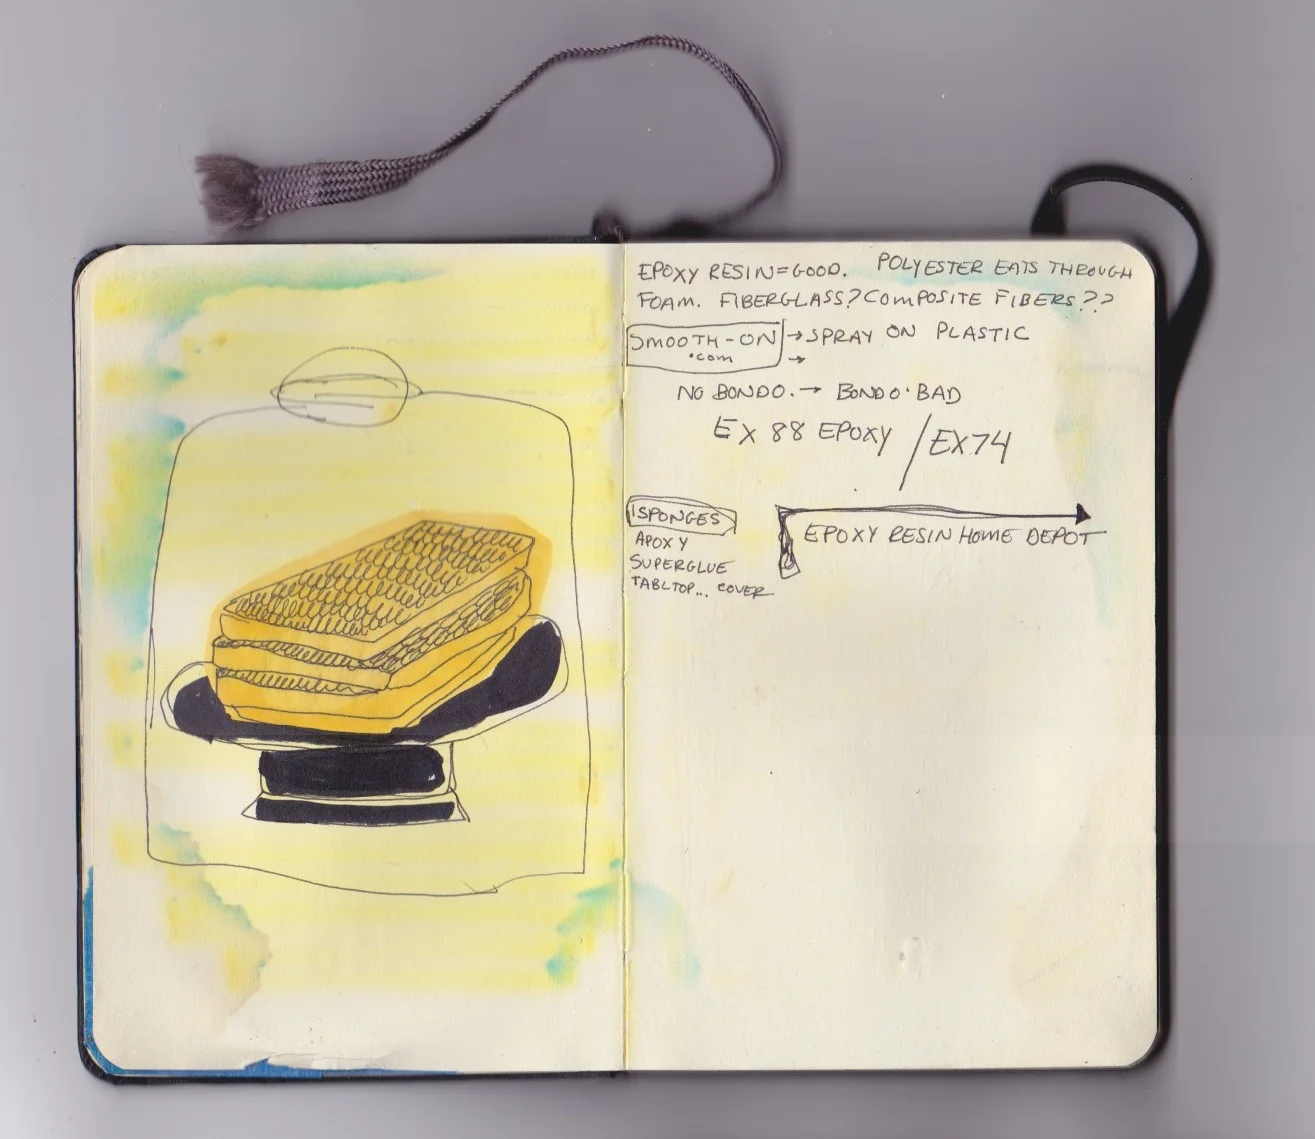 EPOXY RESIN=GOOD. POLYESTER EATS THROUGH
FOAM. FIBERGLASS? COMPOSITE FIBERS??
SMOOTH-ON → SPRAY ON PLASTIC
.com →
NO BONDO. → BONDO·BAD
EX 88 EPOXY / EX74
SPONGES
APOXY
SUPERGLUE
TABLTOP... COVER
EPOXY RESIN HOME DEPOT